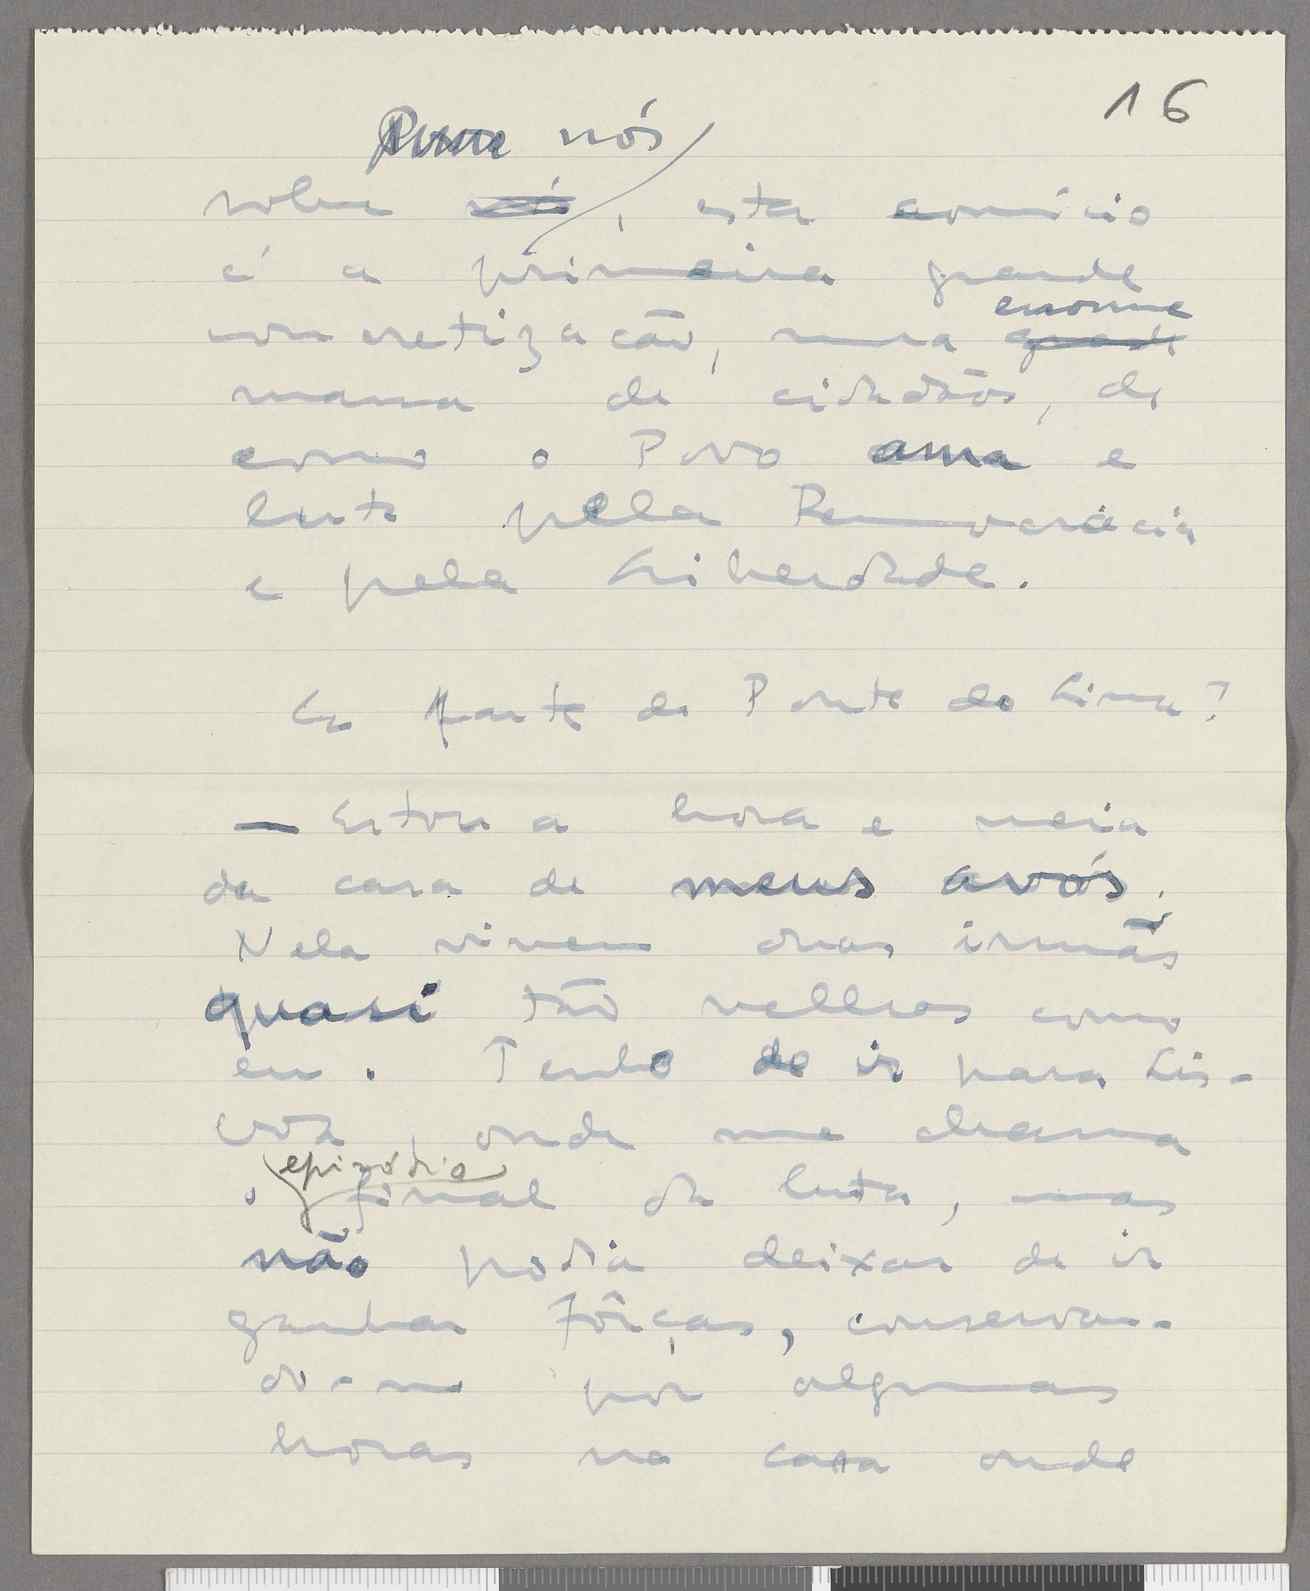 16
Para nós
sobre nós, este comício
é a primeira grande
concretização, numa enorme
grande
massa de cidadãos, de
como o Povo ama e
luta pela Democrácia
e pela Liberdade.
da Ponte do Lima?
— Estou a hora e meia
da casa de meus avós.
Nela vivem duas irmãs
quasi tão velhas como
eu. Tenho de ir para Lis-
boa, onde me chama
episódio
o final da luta, mas
não podia deixar de ir
ganhar fôrças, conservan-
do-me por algumas
horas na casa onde